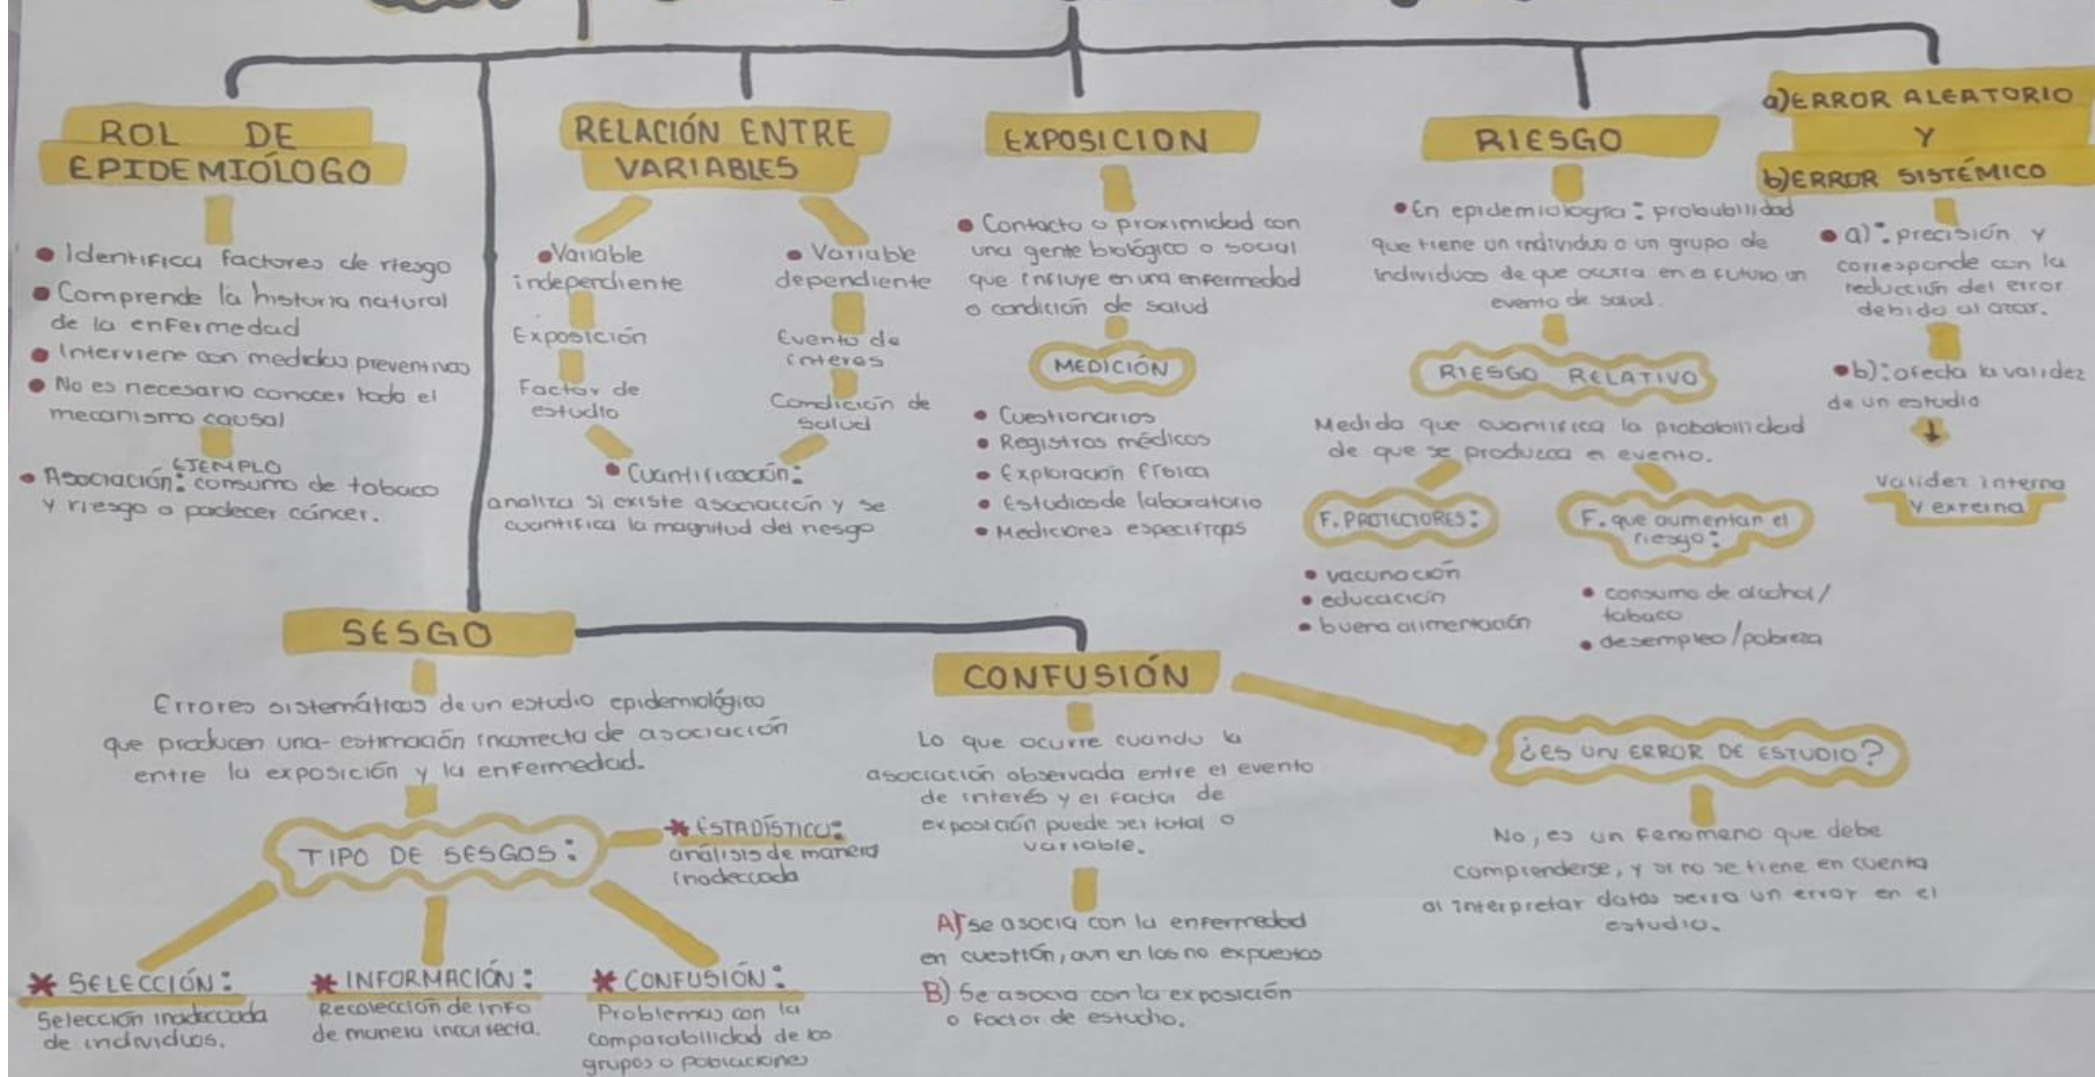 ROL DE
EPIDEMIÓLOGO
• Identifica factores de riesgo
• Comprende la historia natural
de la enfermedad
• Interviene con medidas preventivas
• No es necesario conocer todo el
mecanismo causal
EJEMPLO
• Asociación: consumo de tabaco
y riesgo a padecer cáncer.
RELACIÓN ENTRE
VARIABLES
• Variable
independiente
Exposición
Factor de
estudio
• Variable
dependiente
Evento de
interes
Condición de
salud
• Cuantificación:
analiza si existe asociación y se
cuantifica la magnitud del riesgo
EXPOSICION
• Contacto o proximidad con
una gente biológico o social
que influye en una enfermedad
o condición de salud
MEDICIÓN
• Cuestionarios
• Registros médicos
• Exploración física
• Estudios de laboratorio
• Mediciones especificas
RIESGO
• En epidemiología: probabilidad
que tiene un individuo o un grupo de
individuos de que ocurra en a futuro un
evento de salud.
RIESGO RELATIVO
Medida que cuantifica la probabilidad
de que se produzca el evento.
F. PROTECTORES:
• vacunación
• educación
• buena alimentación
F. que aumentan el
riesgo:
• consumo de alcohol/
tabaco
• desempleo/pobreza
a) ERROR ALEATORIO
Y
b) ERROR SISTÉMICO
• a): precisión y
corresponde con la
reducción del error
debido al azar.
• b): afecta la validez
de un estudio
↓
Validez interna
y externa
SESGO
Errores sistemáticos de un estudio epidemiológico
que producen una estimación incorrecta de asociación
entre la exposición y la enfermedad.
TIPO DE SESGOS:
* ESTADÍSTICO:
análisis de manera
inadecuada
* SELECCIÓN:
Selección inadecuada
de individuos.
* INFORMACIÓN:
Recolección de info
de manera incorrecta.
* CONFUSIÓN:
Problemas con la
comparabilidad de los
grupos o poblaciones
CONFUSIÓN
Lo que ocurre cuando la
asociación observada entre el evento
de interés y el factor de
exposición puede ser total o
variable.
A) se asocia con la enfermedad
en cuestión, aun en los no expuestos
B) Se asocia con la exposición
o factor de estudio.
¿ES UN ERROR DE ESTUDIO?
No, es un fenomeno que debe
comprenderse, y si no se tiene en cuenta
al interpretar datos sería un error en el
estudio.